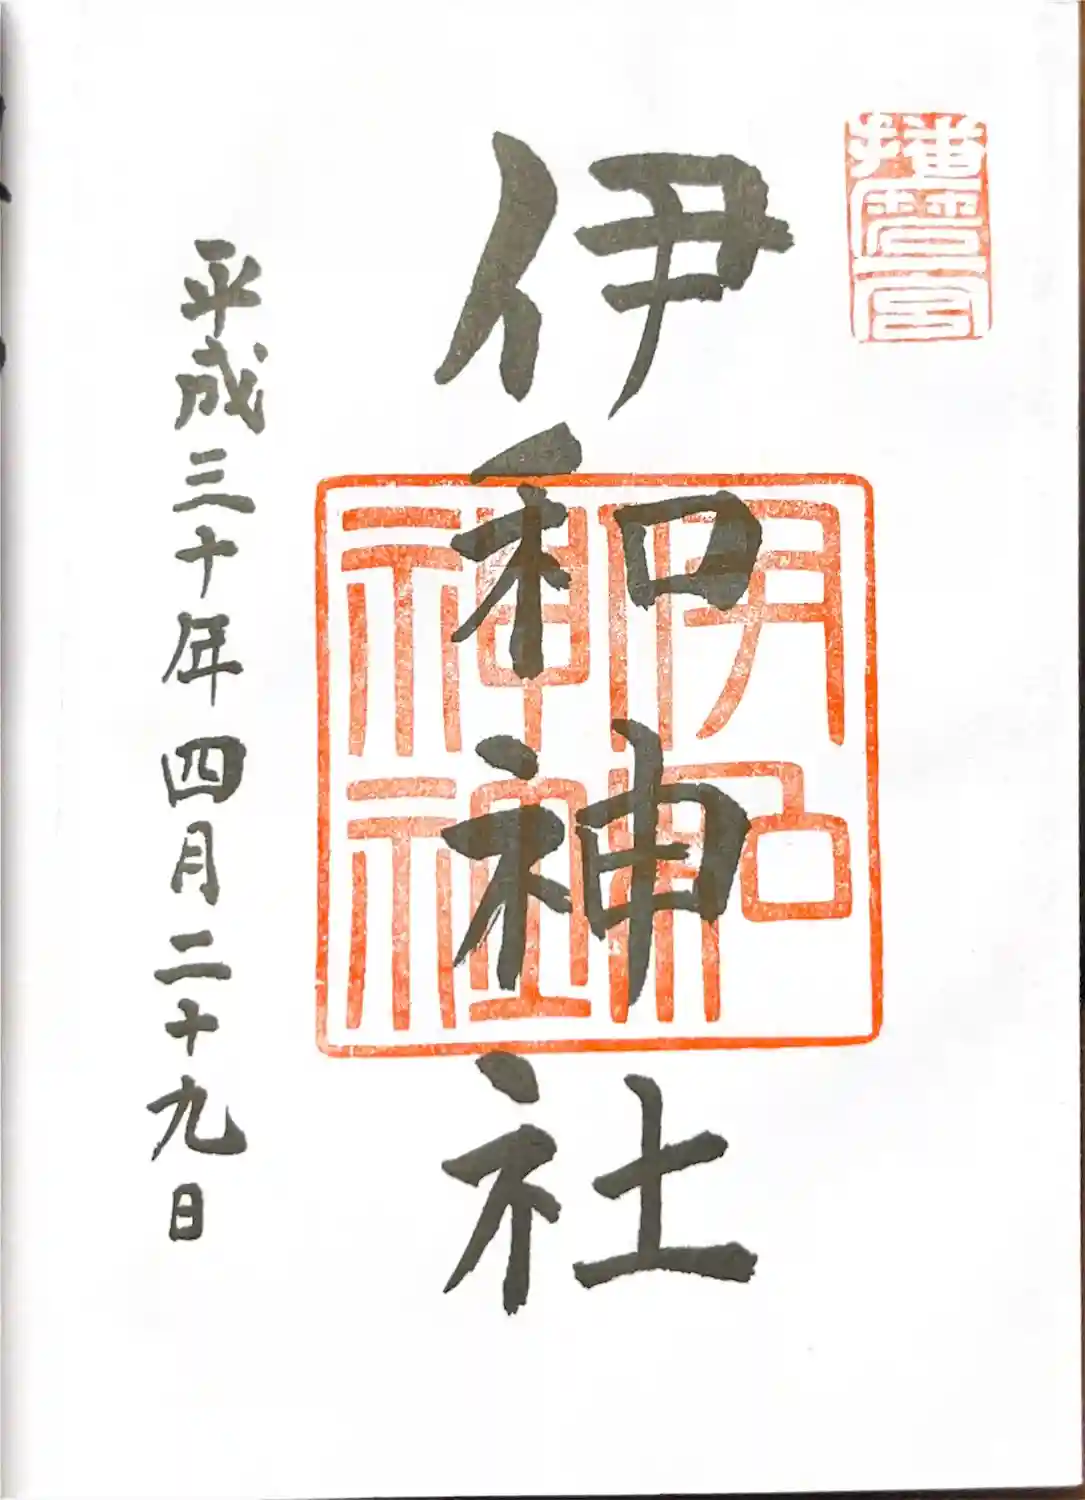 播磨一宮
伊和神社
伊和
神社
平成三十年四月二十九日